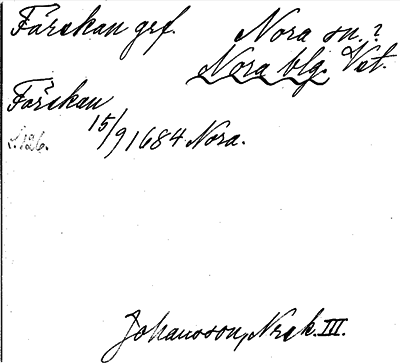 Färskan grf.
Nora sn.?
Nora blg. Vst.
Färskan
15/9 1684 Nora.
s. 126.
Johansson, Nrsk. III.